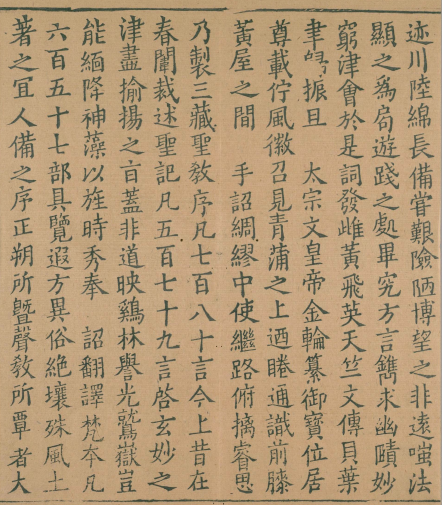 迹川陸綿長備甞艱險陋博望之非遠嗤法
顯之爲局遊踐之處畢究方言鐫求幽賾妙
窮津會於是詞發雌黃飛英天竺文傳貝葉
聿歸振旦　太宗文皇帝金輪纂御寶位居
尊載佇風徽召見青蒲之上迺睠通識前膝
黃屋之間　手詔綢繆中使繼路俯摛睿思
乃製三藏聖教序凡七百八十言今上昔在
春闈裁述聖記凡五百七十九言啓玄妙之
津盡揄揚之旨蓋非道映鷄林譽光鷲嶽豈
能緬降神藻以旌時秀奉　詔翻譯梵夲凡
六百五十七部具覽遐方異俗絶壤殊風土
著之冝人備之序正朔所曁聲教所覃者大